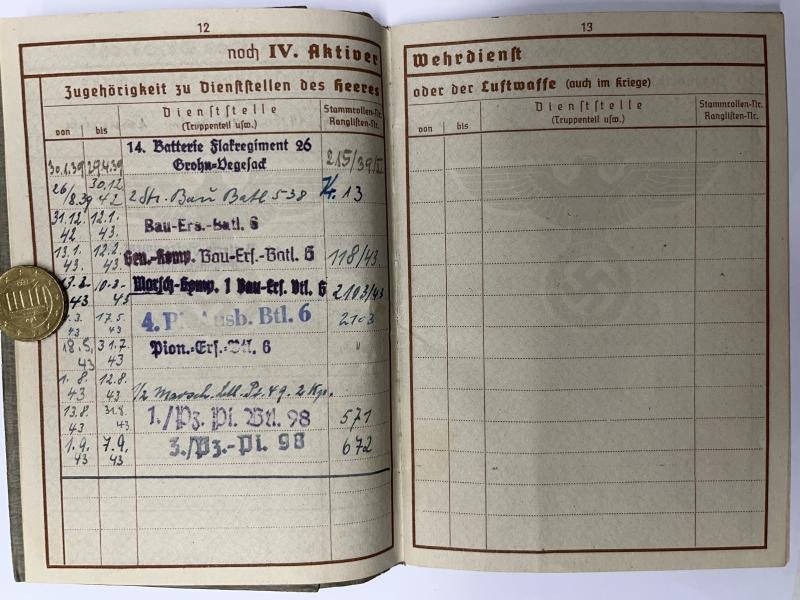 12
noch IV. Aktiver
Zugehörigkeit zu Dienststellen des Heeres
von
bis
Dienststelle
(Truppenteil usw.)
Stammrollen-Nr.
Ranglisten-Nr.
30.1.39
29.4.39
14. Batterie Flakregiment 26
Grohn-Vegesack
215/39/
26/8.39
30.12.42
2 Str. Bau Batl 538
13
31.12.42
12.1.43.
Bau-Ers.-Batl. 6
13.1.43.
12.2.43.
Gen.-Komp. Bau-Ers.-Batl. 6
118/43.
43
43
Marsch-Komp. 1 Bau-Ers. Btl. 6
2103/43
3.43
17.5.43
4. Ausb. Btl. 6
2103
18.5.43
31.7.43
Pion.-Ers.-Btl. 6
"
1.8.43
12.8.43
1/2 Marsch. 2 Kp.
13.8.43
31.8.43
1./Pz. Pi. Btl. 98
571
1.9.43
7.9.43
3./Pz.-Pi. 98
672
13
Wehrdienst
oder der Luftwaffe (auch im Kriege)
von
bis
Dienststelle
(Truppenteil usw.)
Stammrollen-Nr.
Ranglisten-Nr.